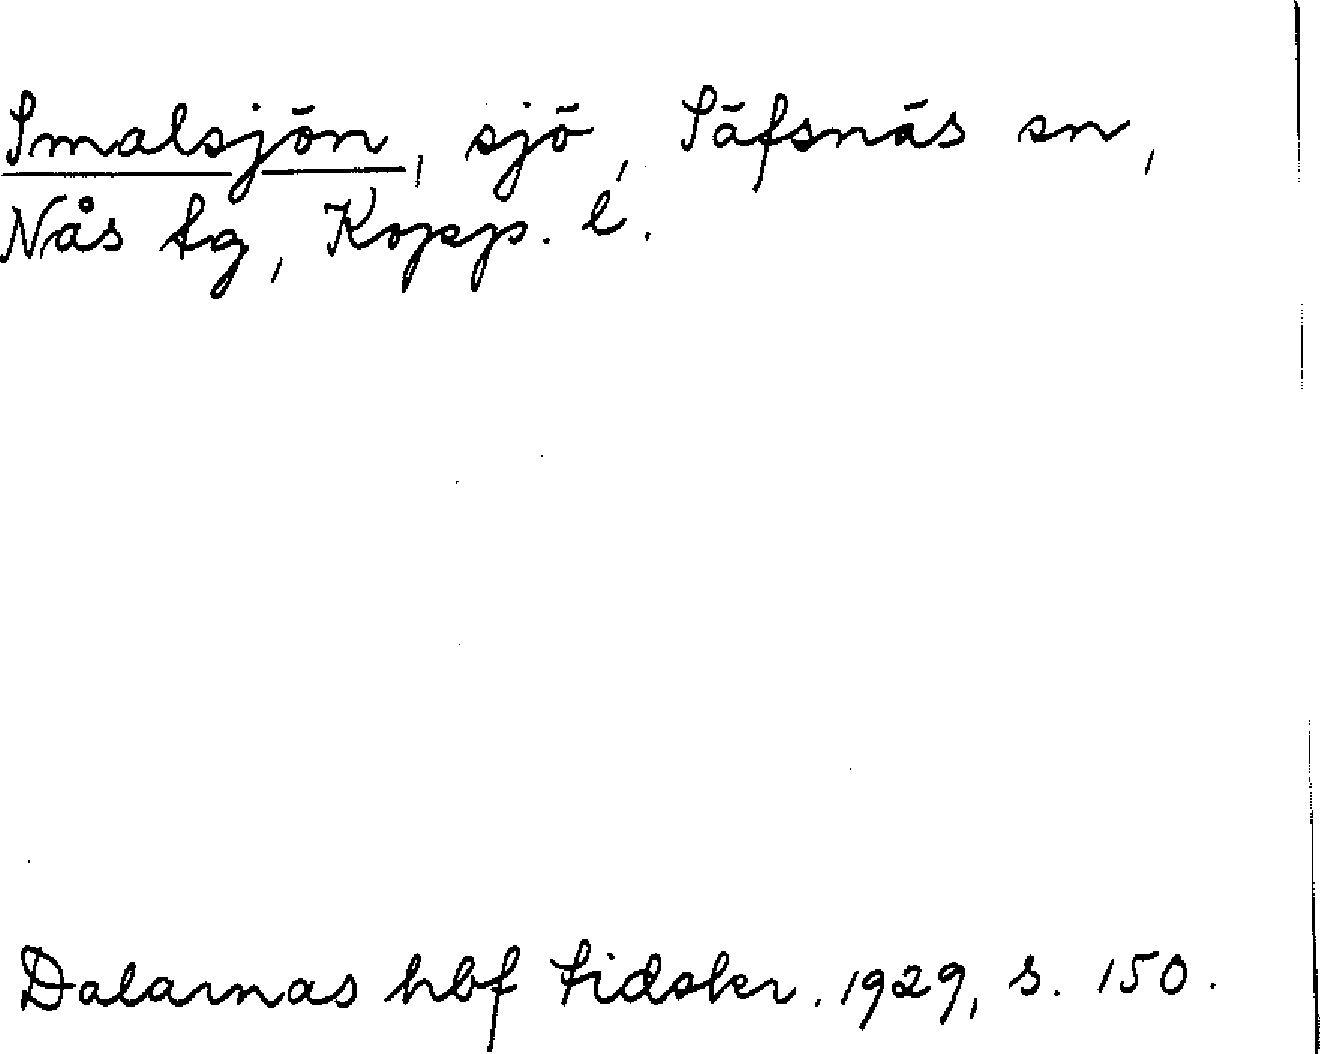 Smalsjön, sjö, Säfsnäs sn,
Nås tg, Kopp. l.
Dalarnas hbf tidskr. 1929, s. 150.